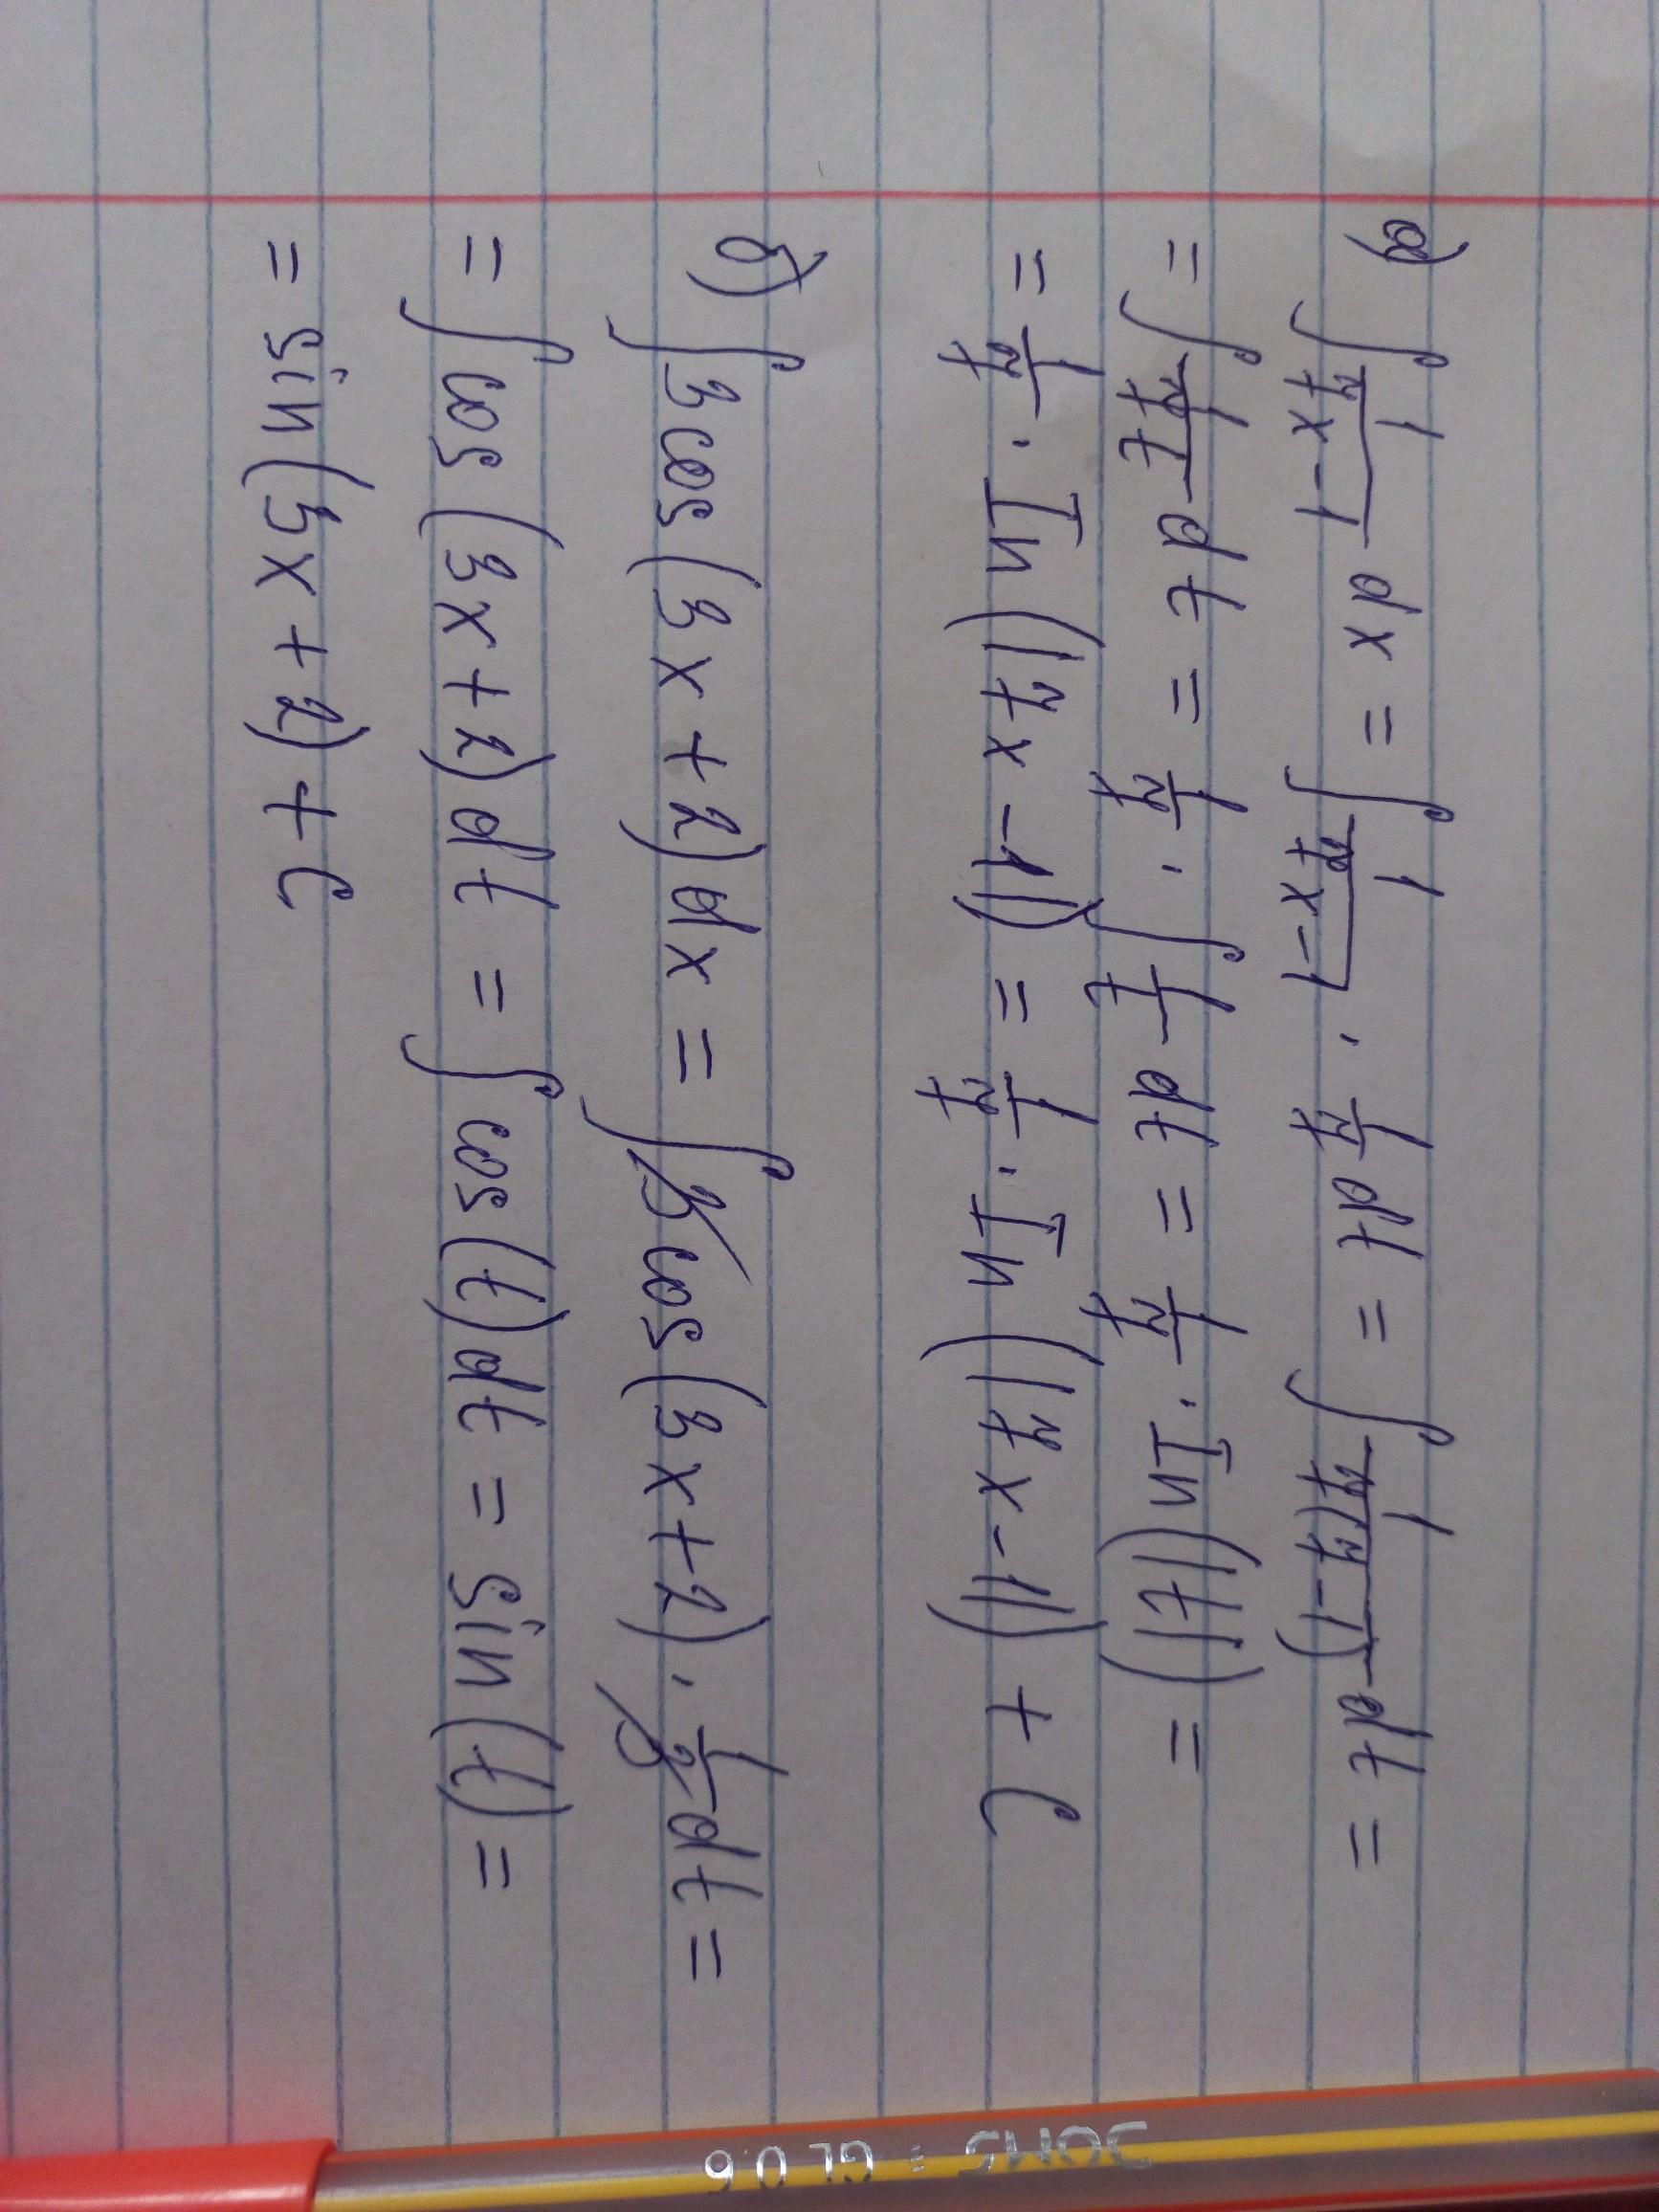 а) ∫ 1/(7x-1) dx = ∫ 1/(7x-1) · 1/7 dt = ∫ 1/(7(7-1)) dt =
= ∫ 1/(7t) dt = 1/7 · ∫ 1/t dt = 1/7 · In(|t|) =
= 1/7 · In(|7x-1|) = 1/7 · In(|7x-1|) + C
б) ∫ 3cos(3x+2)dx = ∫ 3cos(3x+2) · 1/3 dt =
= ∫ cos(3x+2)dt = ∫ cos(t)dt = sin(t) =
= sin(3x+2)+C
JOMS : GL 06